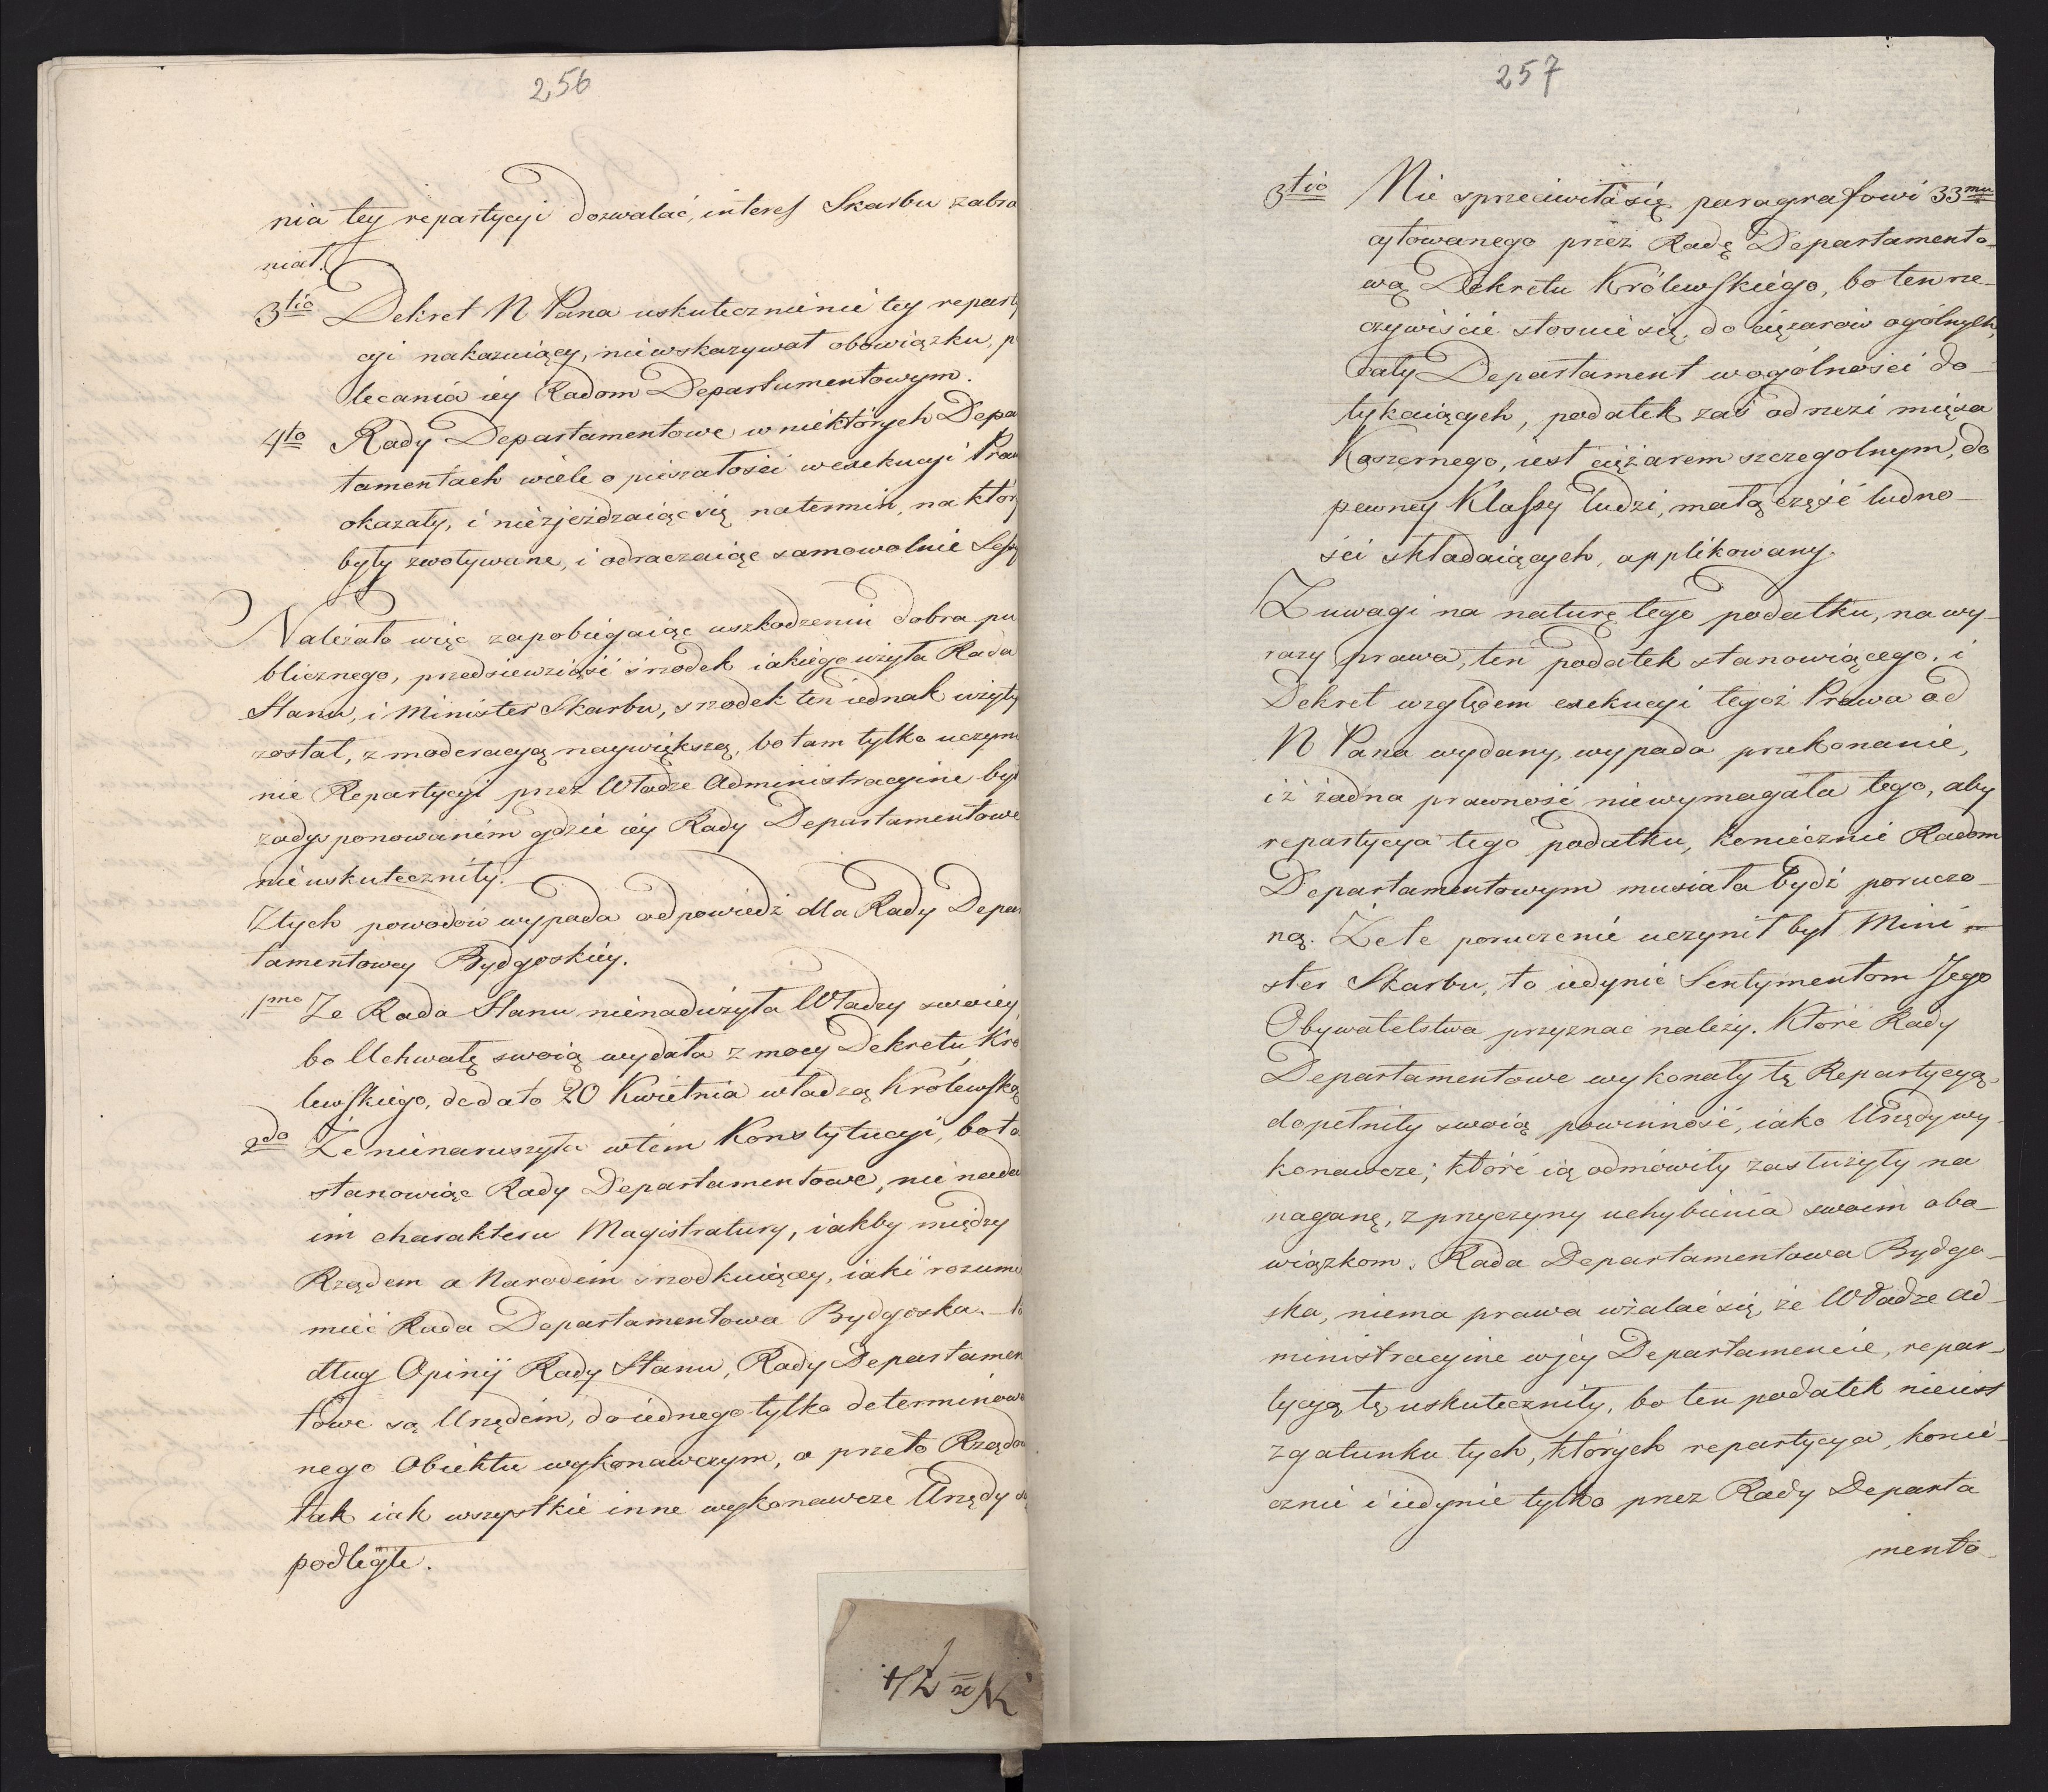 256
nia tey repartycyi dozwalać, interes Skarbu zabra
niał.
3tio Dekret N Pana uskutecznienie tey reparty
cyi nakazuiący, niewskazywał obowiązku, p
lecania iey Radom Departamentowym.
4to Rady Departamentowe w niektórych Depa
tamentach wiele opieszałości w exekucyi Praw
okazały, i niezjeżdzaiąc się na termin, na któr
były zwoływane, i odraczaiąc samowolnie Sessy
Należało więc zapobiegaiąc uszkodzeniu dobra pu
blicznego, przedsiewziąść srzodek iakiego użyła Rada
Stanu, i Minister Skarbu, srzodek ten iednak użyty
został, z moderacyą naywiększą, bo tam tylko uczyni
nie Repartycyi przez Władze Administracyine był
zadysponowaném gdzie iey Rady Departamentowe
nieuskuteczniły.
Z tych powodów wypada odpowiedź dla Rady Depar
tamentowey Bydgoskiey.
1mo Że Rada Stanu nienadużyła Władzy swoiey
bo Uchwałę swoią wydała z mocy Dekretu Kró
lewskiego, de dato 20 Kwietnia władzą Królewską
2do Że nienaruszyła w tém Konstytucyi, bo ta
stanowiąc Rady Departamentowe, nie nada
im charakteru Magistratury, iakby między
Rządem a Narodem srzodkuiącey, iaki rozumi
mieć Rada Departamentowa Bydgoska.
dług Opinij Rady Stanu, Rady Departamen
towe są Urzędem, do iednego tylko determinowa
nego Obiektu wykonawczym, a przeto Rządow
tak iak wszystkie inne wykonawcze Urzędy są
podległe.
257
3tio Nie sprzeciwiła się paragrafowi 33mu
cytowanego przez Radę Departamento-
wą Dekretu Królewskiego, bo ten rze-
czywiście stosuie się do ciężarów ogólnych,
cały Departament w ogólności do-
tykaiących, podatek zaś od rzezi mięsa
Koszernego, iest ciężarem szczegolnym, do
pewney Klassy ludzi, małą część ludno-
ści składaiących, applikowany.
Z uwagi na naturę tego podatku, na wy-
razy prawa, ten podatek stanowiącego, i
Dekret względem exekucyi tegoż Prawa od
N Pana wydany, wypada przekonanie,
iż żadna prawność niewymagała tego, aby
repartycya tego podatku, koniecznie Radom
Departamentowym musiała bydź poruczo-
ną. Że te poruczenie uczynił był Mini-
ster Skarbu, to iedynie Sentymentom Jego
Obywatelstwa przyznać należy. Które Rady
Departamentowe wykonały tę Repartycyą,
dopełniły swoią powinność, iako Urzędy wy-
konawcze; które ią odmówiły zasłużyły na
naganę, z przyczyny uchybienia swoim obo-
wiązkom. Rada Departamentowa Bydgo-
ska, niema prawa użalać się, że Władze ad-
ministracyine w jey Departamencie, repar-
tycyą tę uskuteczniły, bo ten podatek nieiest
z gatunku tych, których repartycya, konie-
cznie i iedynie tylko przez Rady Departa
mento-